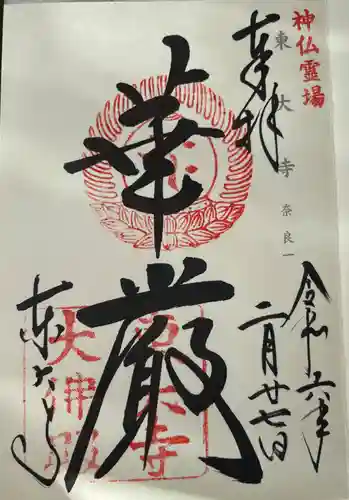 神仏霊場
東大寺
奈良一
奉拝
華厳
令和六年
二月廿七日
東大寺
東大寺
大仏殿